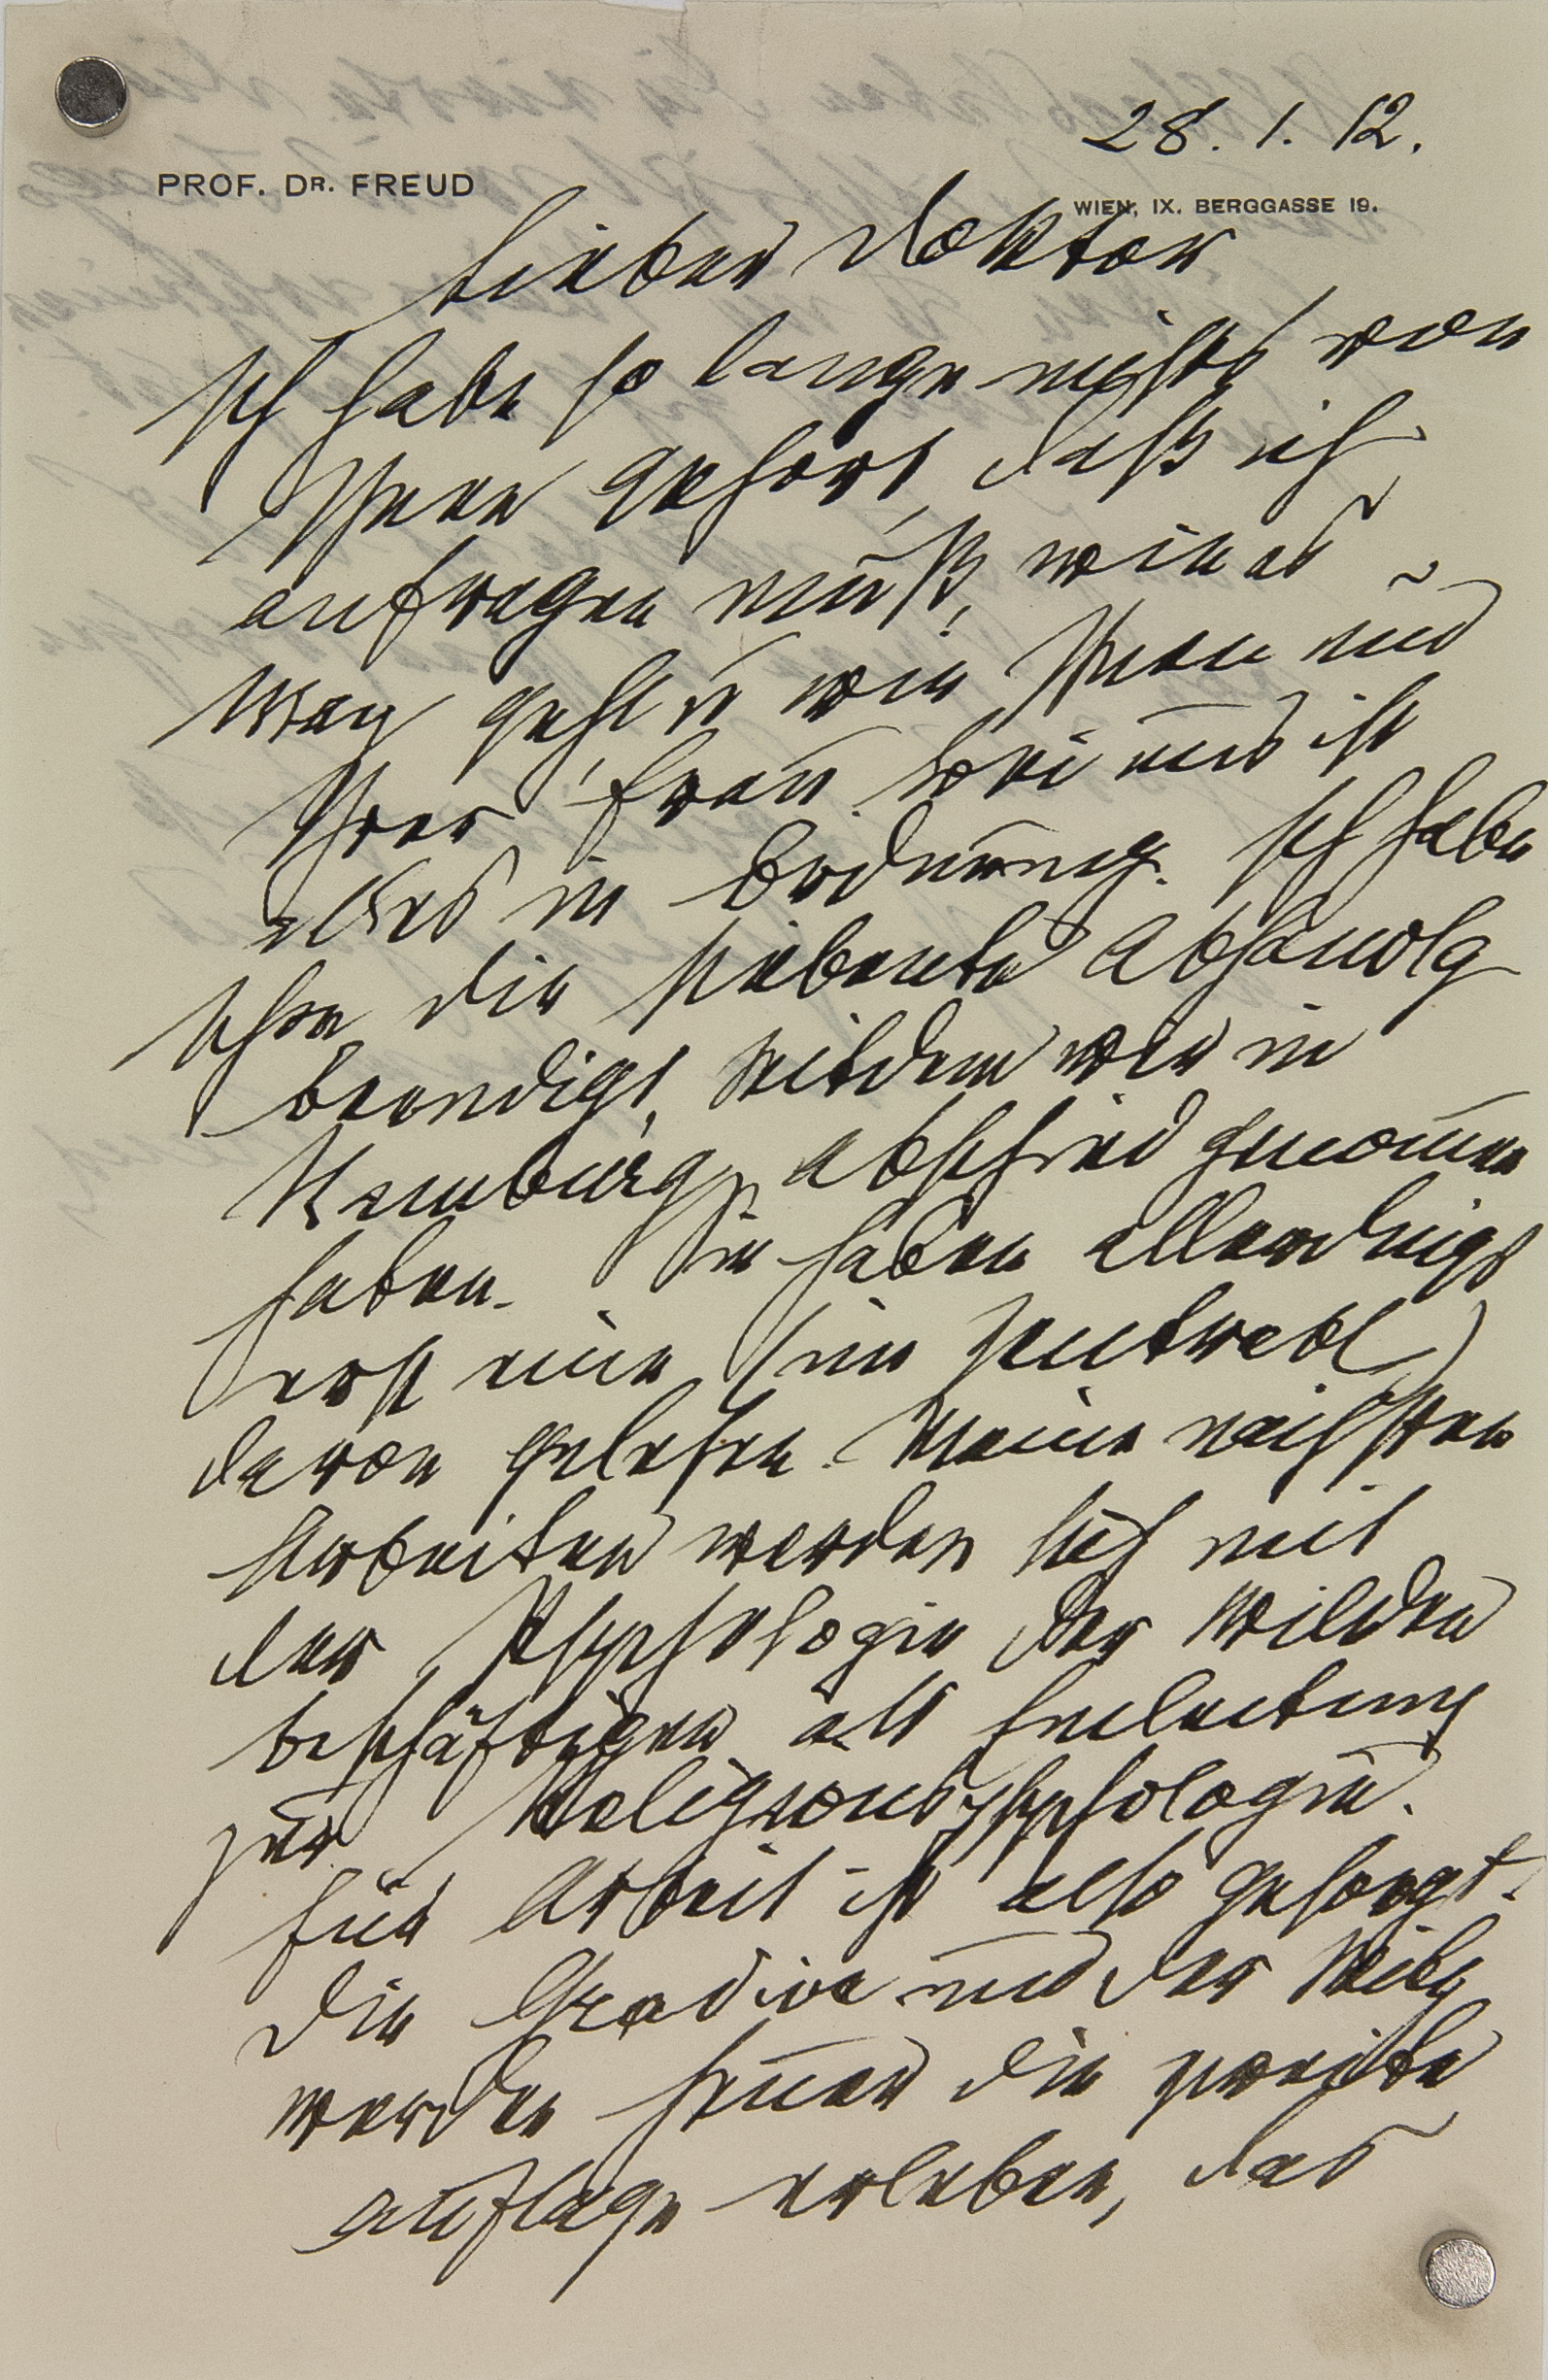 28. 1. 12.
PROF. DR. FREUD
WIEN, IX. BERGGASSE 19.
Lieber Doktor
Ich habe so lange nichts von
Ihnen gehört, daß ich
anfragen muß, wie es
geht u wie Ihnen und
Ihrer Frau. Bei uns ist
alles in Ordnung. Ich habe
die siebente Abhandlg
beendigt, seitdem wir in
Hamburg Abschied genom̄en
haben. Sie haben allerdings
erst eine (im Zentralbl)
davon gelesen. Meine nächsten
Arbeiten werden sich mit
der Psychologie der Wilden
beschäftigen als Einleitung
zur Religionspsychologie.
Für Arbeit ist also gesorgt.
Die Gradiva und der Witz
werden heuer die zweite
Auflage erleben, das